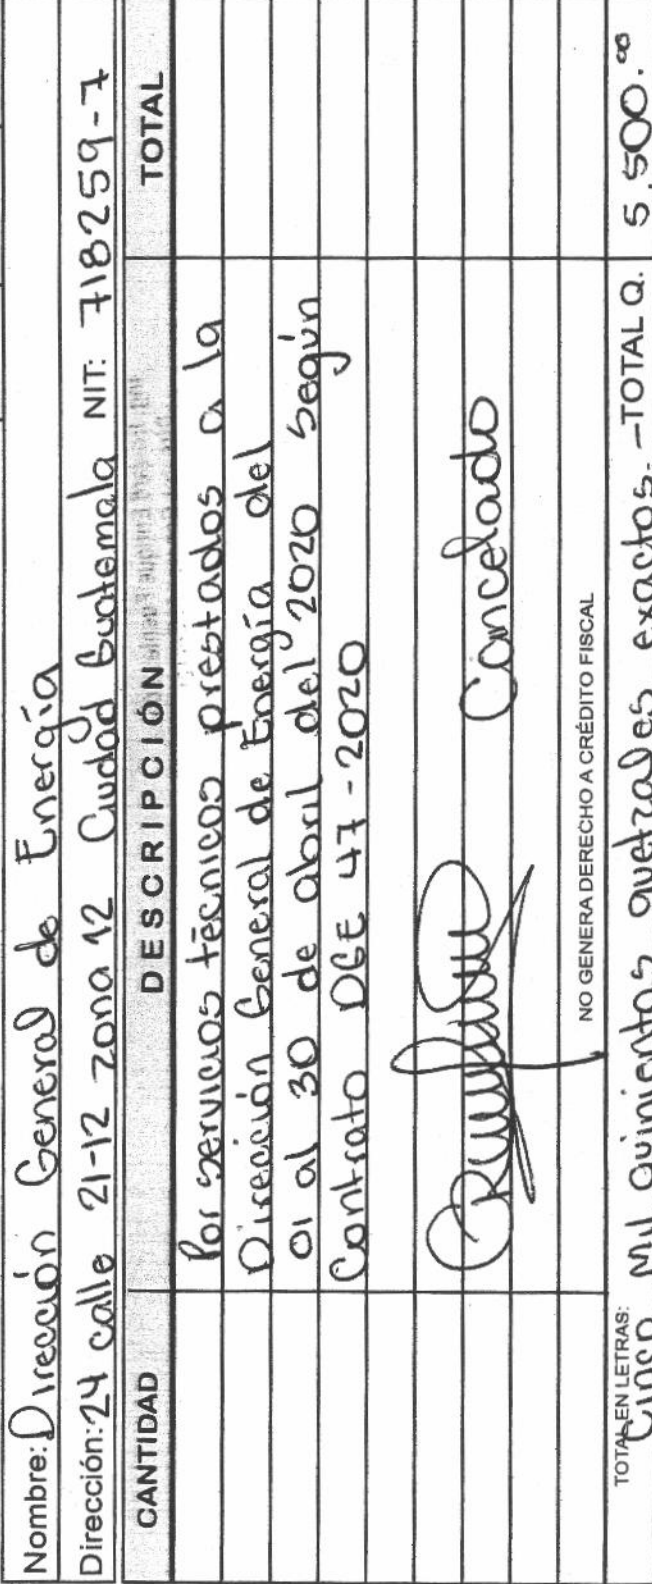 Nombre: Dirección General de Energía
Dirección: 24 calle 21-12 zona 12 Ciudad Guatemala NIT: 718259-7
CANTIDAD DESCRIPCIÓN TOTAL
Por servicios técnicos prestados a la
Dirección General de Energía del
01 al 30 de abril del 2020 según
Contrato DGE 47-2020
Cancelado
NO GENERA DERECHO A CRÉDITO FISCAL
TOTAL EN LETRAS: Cinco Mil Quinientos quetzales exactos. — TOTAL Q. 5,500.00